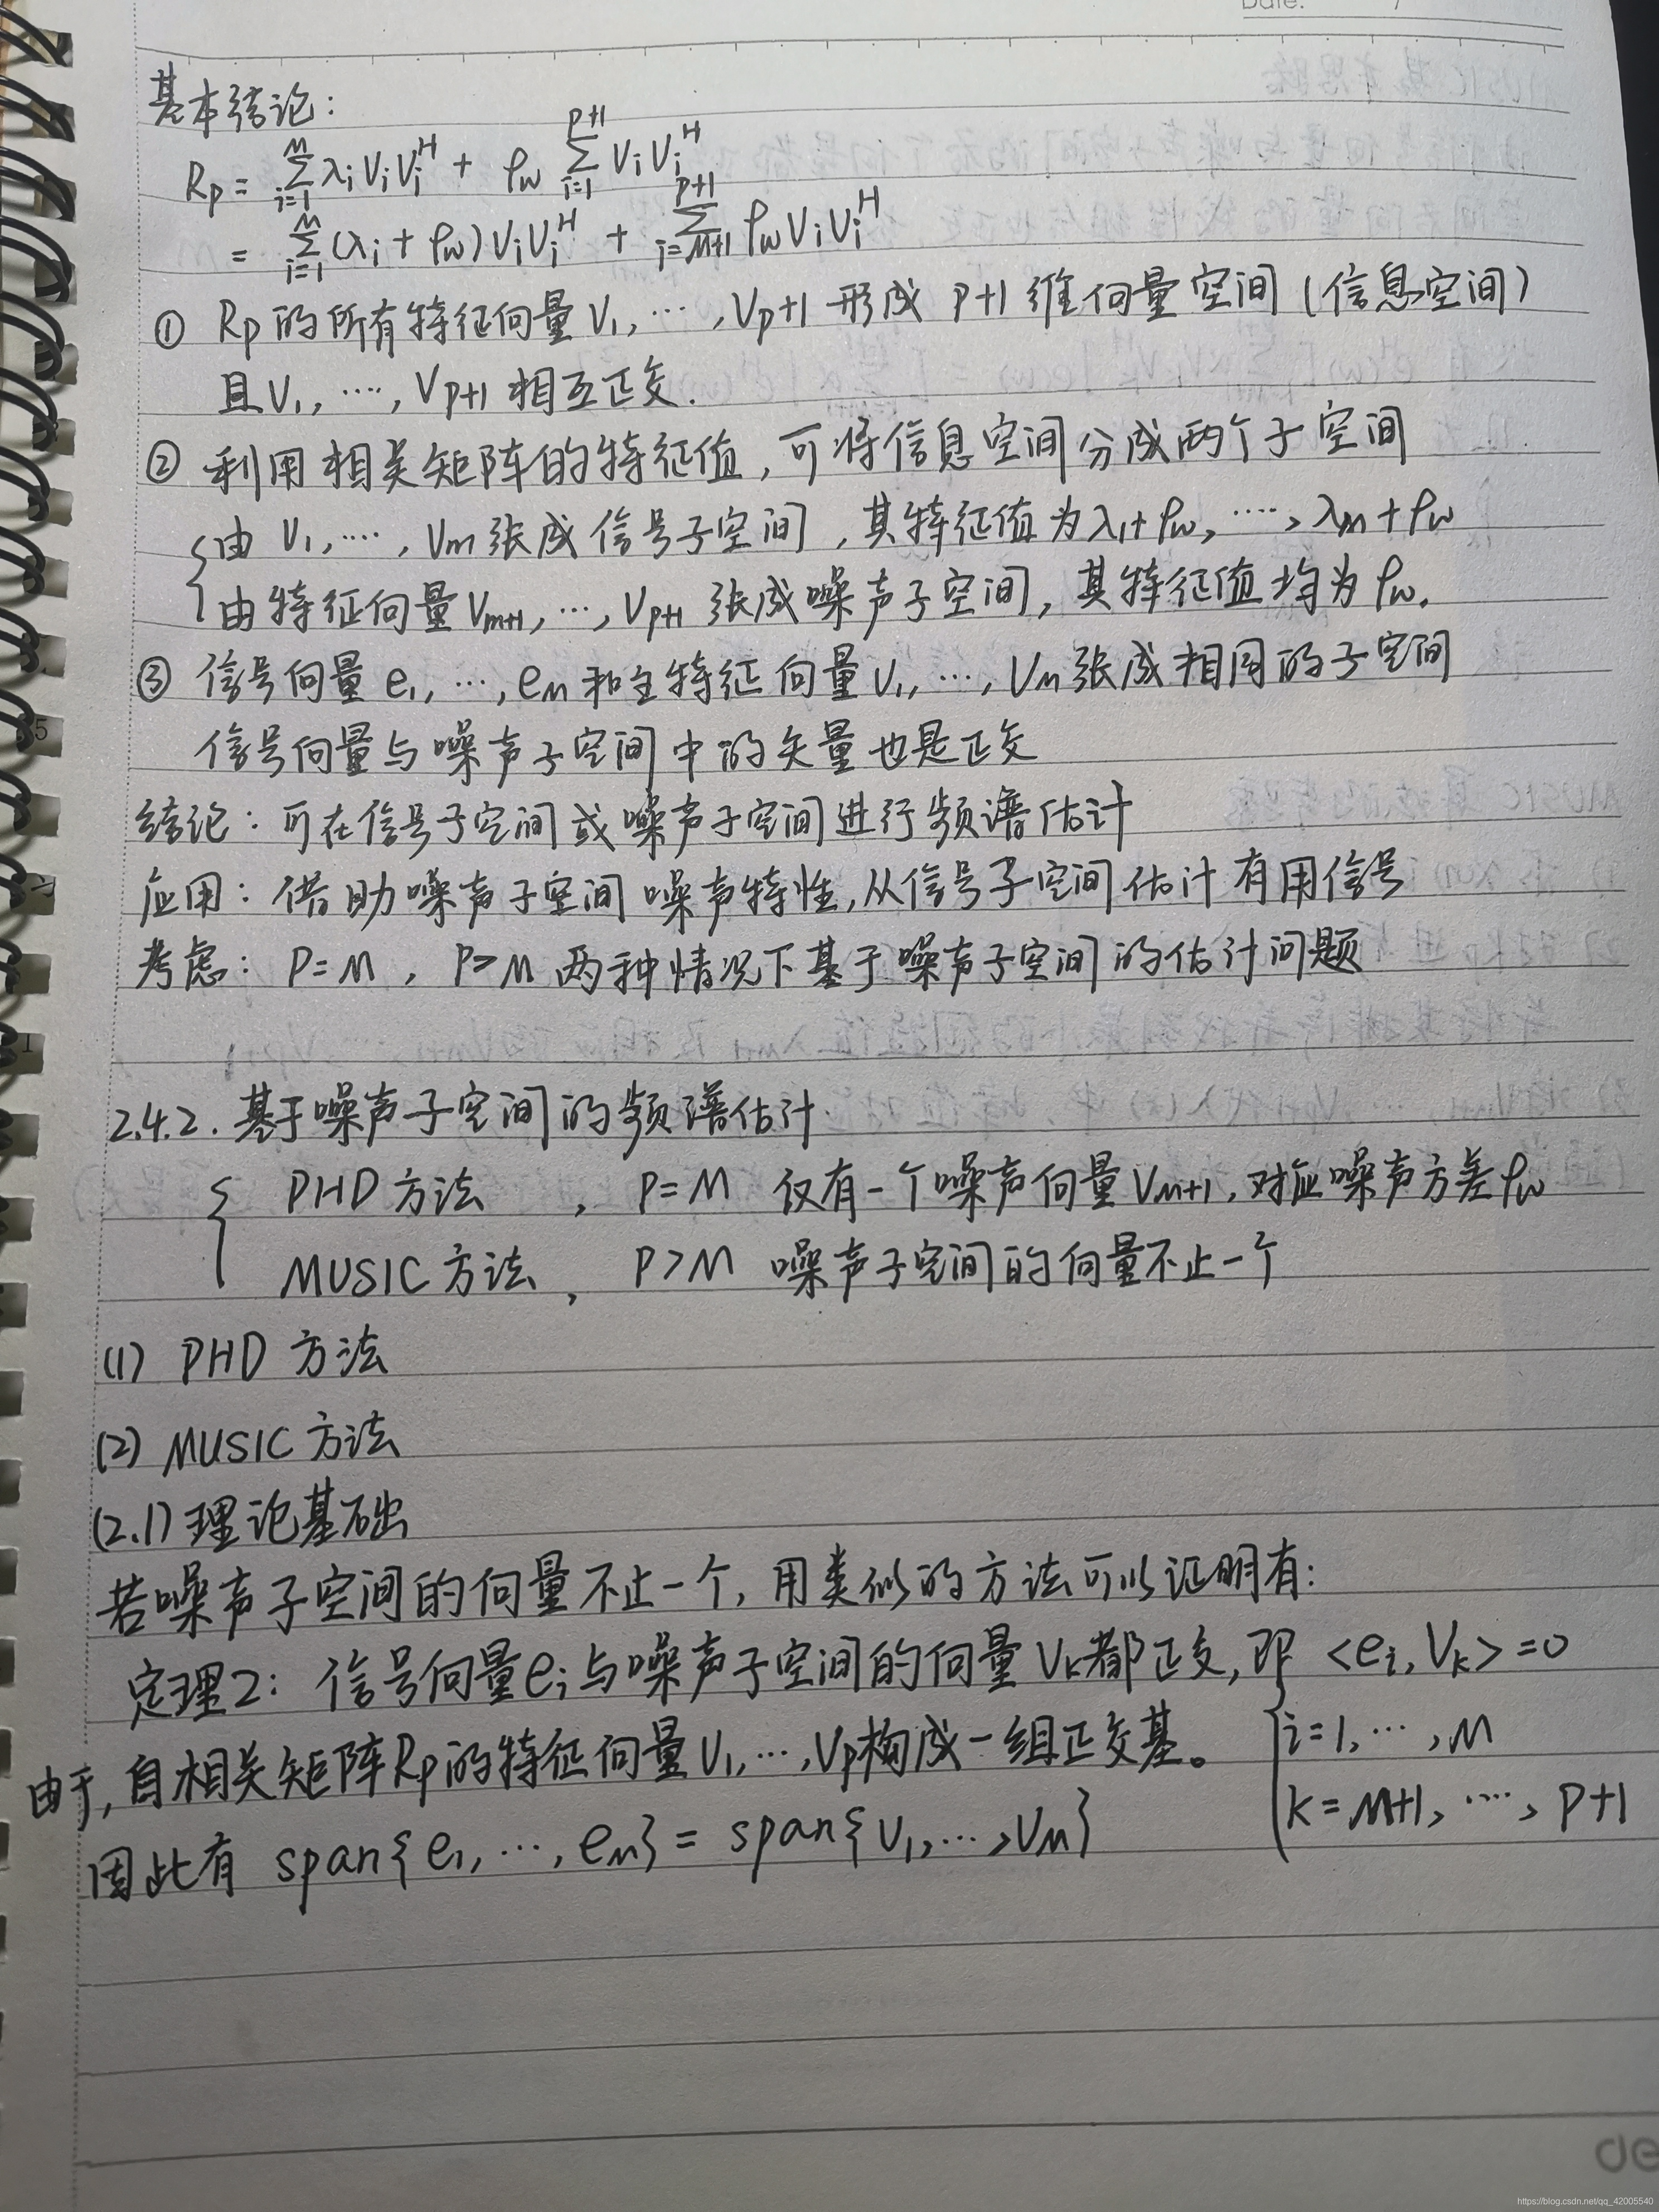 Date:
基本结论:
Rp = Σ_{i=1}^{M} λi Vi Vi^H + ρw Σ_{i=1}^{p+1} Vi Vi^H
= Σ_{i=1}^{M} (λi + ρw) Vi Vi^H + Σ_{i=M+1}^{p+1} ρw Vi Vi^H
① Rp 的所有特征向量 V1, …, Vp+1 形成 p+1 维向量空间 (信息空间)
且 V1, …, Vp+1 相互正交.
② 利用相关矩阵的特征值, 可将信息空间分成两个子空间
{由 V1, …, VM 张成信号子空间, 其特征值为 λ1+ρw, …, λM+ρw
由特征向量 VM+1, …, Vp+1 张成噪声子空间, 其特征值均为 ρw.
③ 信号向量 e1, …, eM 和主特征向量 V1, …, VM 张成相同的子空间
信号向量与噪声子空间中的矢量也是正交
结论: 可在信号子空间或噪声子空间进行频谱估计
应用: 借助噪声子空间噪声特性, 从信号子空间估计有用信号
考虑: P=M, P>M 两种情况下基于噪声子空间的估计问题
2.4.2. 基于噪声子空间的频谱估计
{ PHD 方法, P=M 仅有一个噪声向量 VM+1, 对应噪声方差 ρw
MUSIC 方法, P>M 噪声子空间的向量不止一个
(1) PHD 方法
(2) MUSIC 方法
(2.1) 理论基础
若噪声子空间的向量不止一个, 用类似的方法可以证明有:
定理2: 信号向量 ei 与噪声子空间的向量 Vk 都正交, 即 <ei, Vk> = 0
{i=1, …, M
k=M+1, …, P+1
由于, 自相关矩阵 Rp 的特征向量 V1, …, Vp 构成一组正交基。
因此有 span{e1, …, eM} = span{V1, …, VM}
de
https://blog.csdn.net/qq_42005540